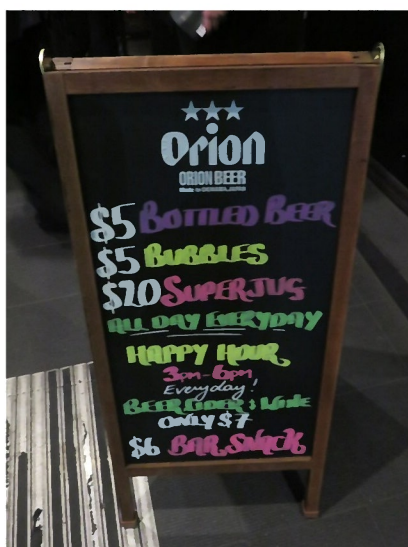 Orion
ORION BEER
Made in OKINAWA, JAPAN
$5 BOTTLED BEER
$5 BUBBLES
$20 SUPERJUG
ALL DAY EVERYDAY
HAPPY HOUR
3pm-6pm
Everyday!
BEER CIDER & WINE
ONLY $7
$6 BAR SNACK